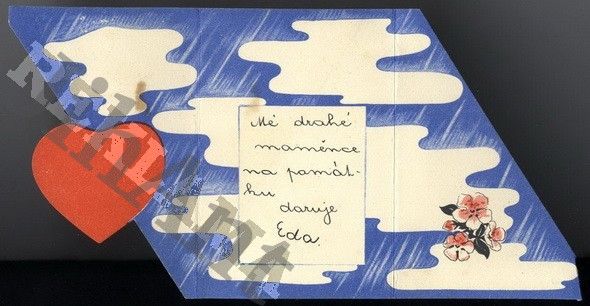 Mé drahé
maměnce
na památ-
ku
daruje
Eda.
REKLAMA